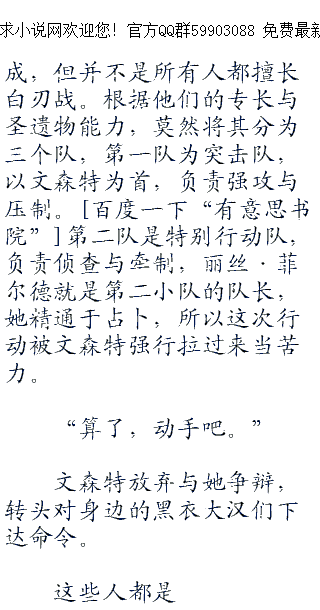 求小说网欢迎您! 官方QQ群59903088 免费最新
成，但并不是所有人都擅长
白刃战。根据他们的专长与
圣遗物能力，莫然将其分为
三个队，第一队为突击队，
以文森特为首，负责强攻与
压制。[百度一下“有意思书
院”]第二队是特别行动队，
负责侦查与牵制，丽丝·菲
尔德就是第二小队的队长，
她精通于占卜，所以这次行
动被文森特强行拉过来当苦
力。
“算了，动手吧。”
文森特放弃与她争辩，
转头对身边的黑衣大汉们下
达命令。
这些人都是